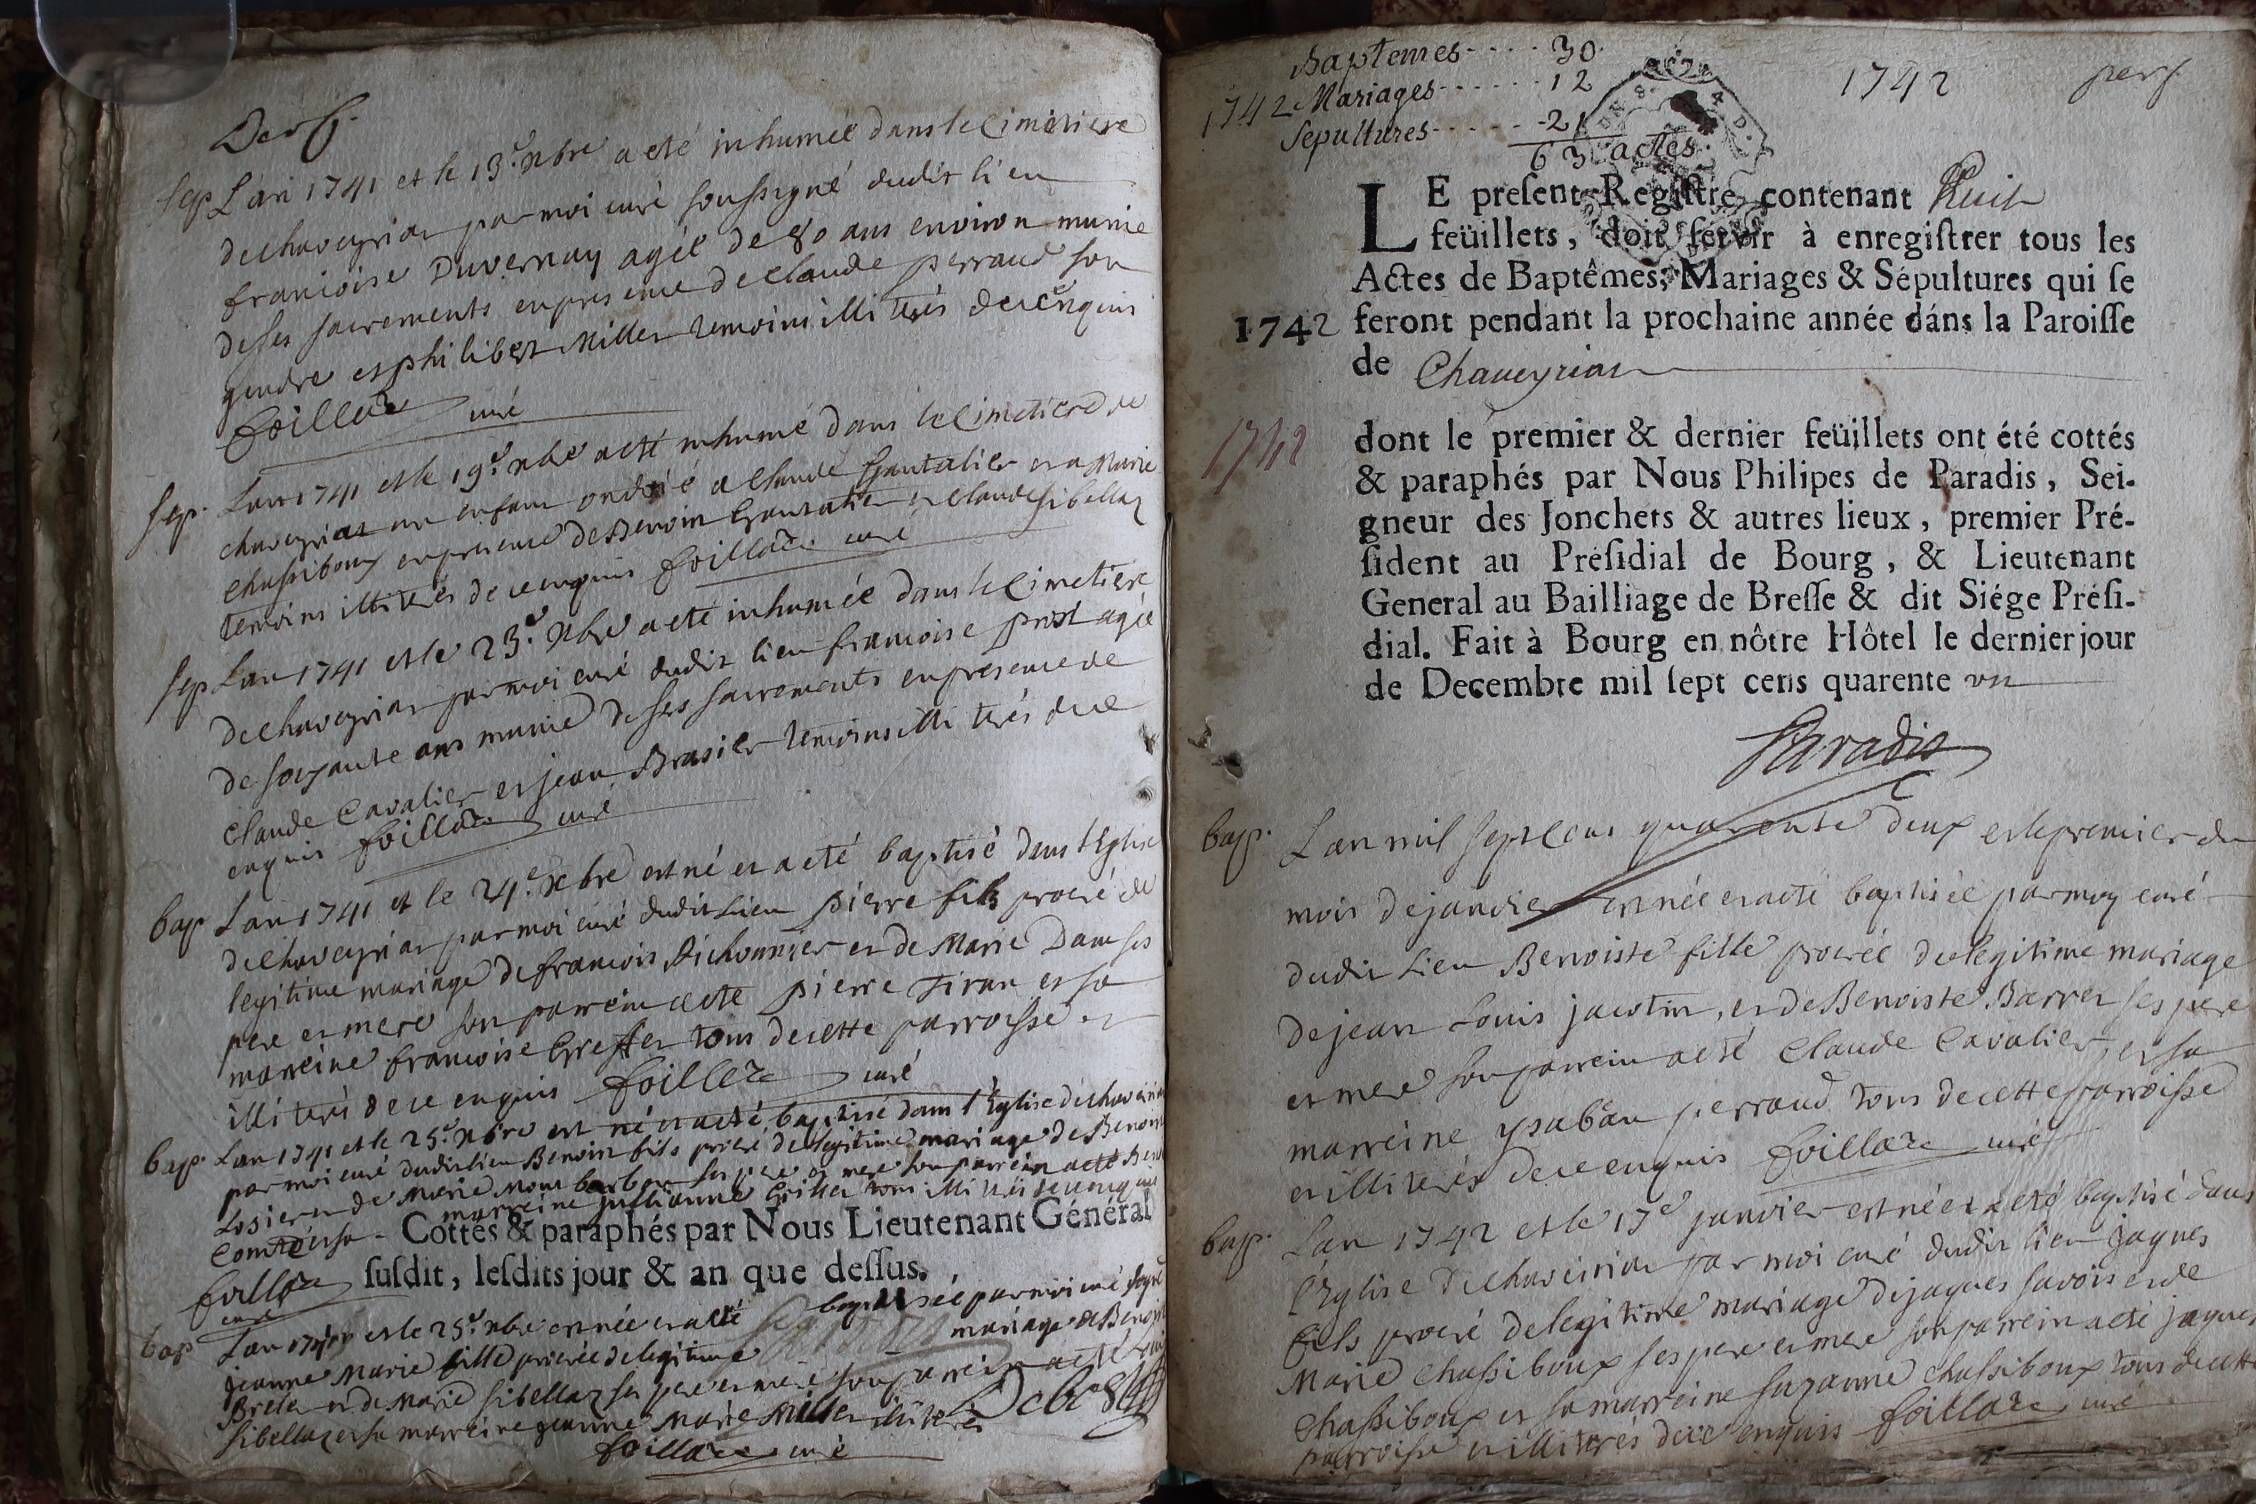 Der f.
sep L'an 1741 et le 13.e xbre a eté inhumée dans le cimetiere
de chaveyriat par moi curé soussigné dudit lieu
francoise Duvernay agée de 80 ans environ munie
de ses sacrements en presence de claude perraud son
gendre et philibert Miller temoins illiterés de ce enquis
foillard curé
sep. Lan 1741 et le 19.e xbre a eté inhumé dans le Cimetiere de
chaveyriat un enfant ondoié a claude Gantalier et a Marie
chassiboux en presence de Benoit Gantalier et claude sibellas
temoins illiterés de ce enquis foillard curé
sep Lan 1741 et le 23.e xbre a eté inhumée dans le Cimetiere
de chaveyriat par moi curé dudit lieu francoise prost agée
de soixante ans munie de ses sacrements en presence de
claude Cavalier et jean Brasier temoins illiterés de ce
enquis foillard curé
bap Lan 1741 et le 24.e xbre est né et a eté baptisé dans l'Eglise
de chaveyriat par moi curé dudit Lieu pierre fils procré de
legitime mariage de francois Pichonnier et de Marie Dam ses
pere et mere son parrein a eté pierre Tiran et sa
marreine francoise Greffet tous de cette parroisse et
illiterés de ce enquis foillard curé
bap. Lan 1741 et le 25.e xbre est né et a eté baptisé dans l'Eglise de chaveiriat
par moi curé dudit lieu Benoit fils procré de legitime mariage de Benoit
Losier et de Marie Mont barbon ses pere et mere son parrein a eté Benoit
Comte et sa marreine jullianne Griller tous illiterés de ce enquis
- Cottés & paraphés par Nous Lieutenant Général
foillard susdit, lesdits jour & an que dessus.
curé
bap Lan 1741 et le 25.e xbre est née et a eté baptisée par moi curé soussigné
jeanne Marie fille procréé de legitime mariage de Benoit
Brete et de Marie sibellas ses pere et mere son parrein a eté
sibellas et sa marreine jeanne Marie Miller illiterés
foillard curé
Baptemes - - - - 30.
1742 Mariages - - - - - - 12
Sepultures - - - - - - 21
63 actes.
1742
pers
LE present Registre contenant Huit
feüillets, doit servir à enregistrer tous les
Actes de Baptêmes, Mariages & Sépultures qui se
1742 feront pendant la prochaine année dáns la Paroisse
de Chaveyriat
1742
dont le premier & dernier feüillets ont été cottés
& paraphés par Nous Philipes de Paradis, Sei-
gneur des Jonchets & autres lieux, premier Pré-
sident au Présidial de Bourg, & Lieutenant
General au Bailliage de Bresse & dit Siége Prési-
dial. Fait à Bourg en nôtre Hôtel le dernier jour
de Decembre mil sept cens quarente un
Paradis
bap. L'an mil sept Cens quarente deux et le premier du
mois de janvier est née et a eté baptisée par moy curé
dudit Lieu Benoiste fille procréé de legitime mariage
de jean Louis jacotin, et de Benoiste Barret ses pere
et mere son parrein a eté Claude Cavalier, et sa
marreine ysabau perraud tous de cette parroisse
et illiterés de ce enquis foillard curé
bap. Lan 1742 et le 17.e janvier est né et a eté baptisé dans
l'Eglise de chaveiriat par moi curé dudit lieu jaques
fils procré de legitime mariage de jaques savois et de
Marie chassiboux ses pere et mere son parrein a eté jaques
chassiboux et sa marreine suzanne chassiboux tous de cette
parroisse et illiterés de ce enquis foillard curé